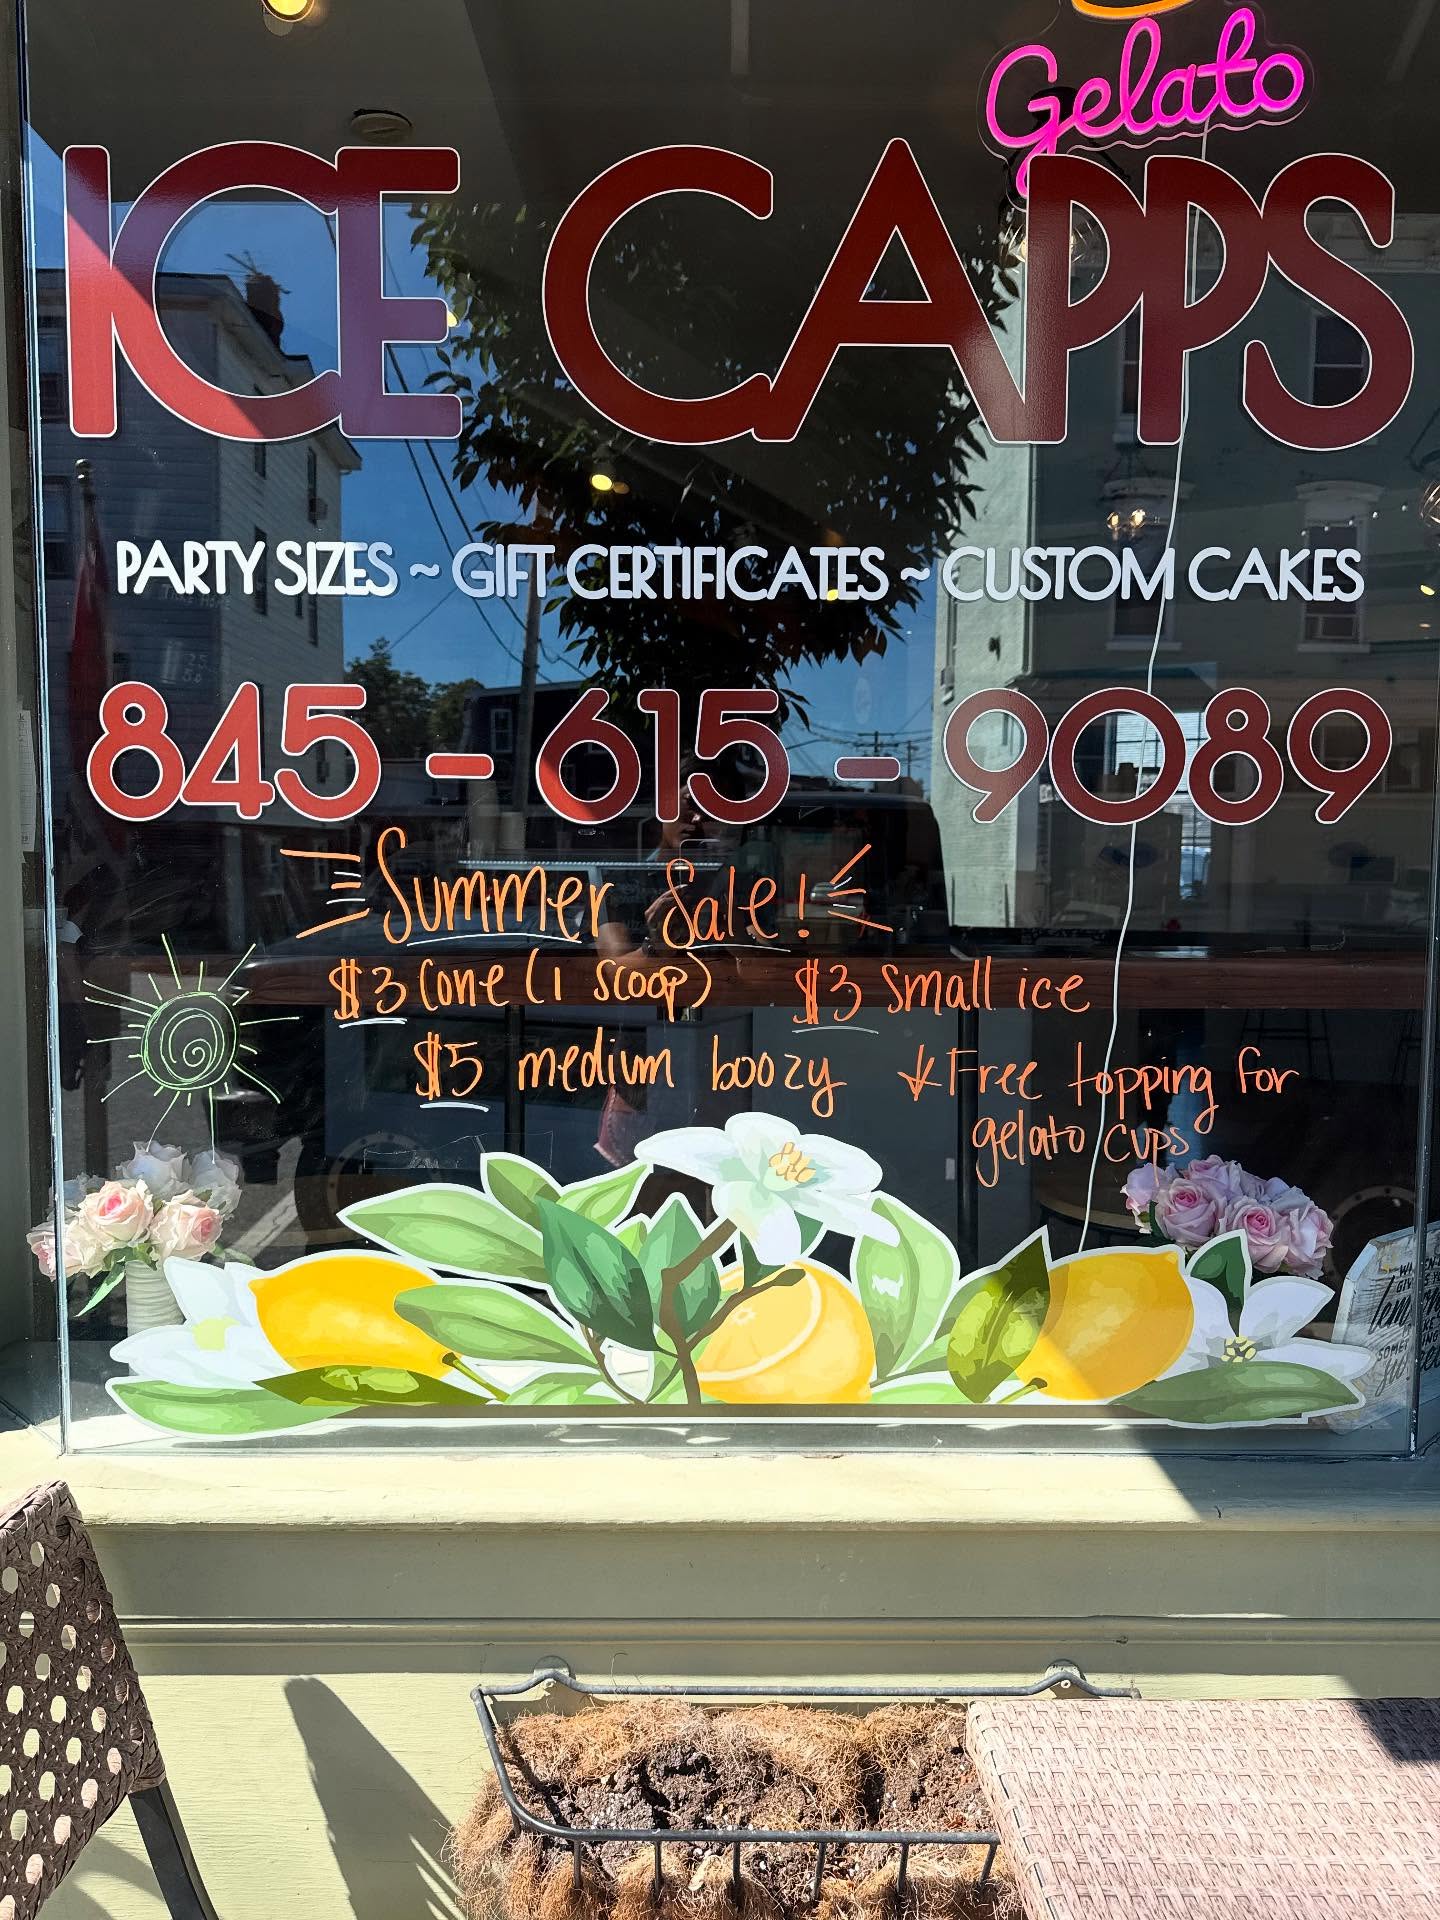 Gelato
ICE CAPPS
PARTY SIZES ~ GIFT CERTIFICATES ~ CUSTOM CAKES
845 - 615 - 9089
Summer Sale!
$3 Cone (1 scoop) $3 small ice
$5 medium boozy Free topping for
gelato cups